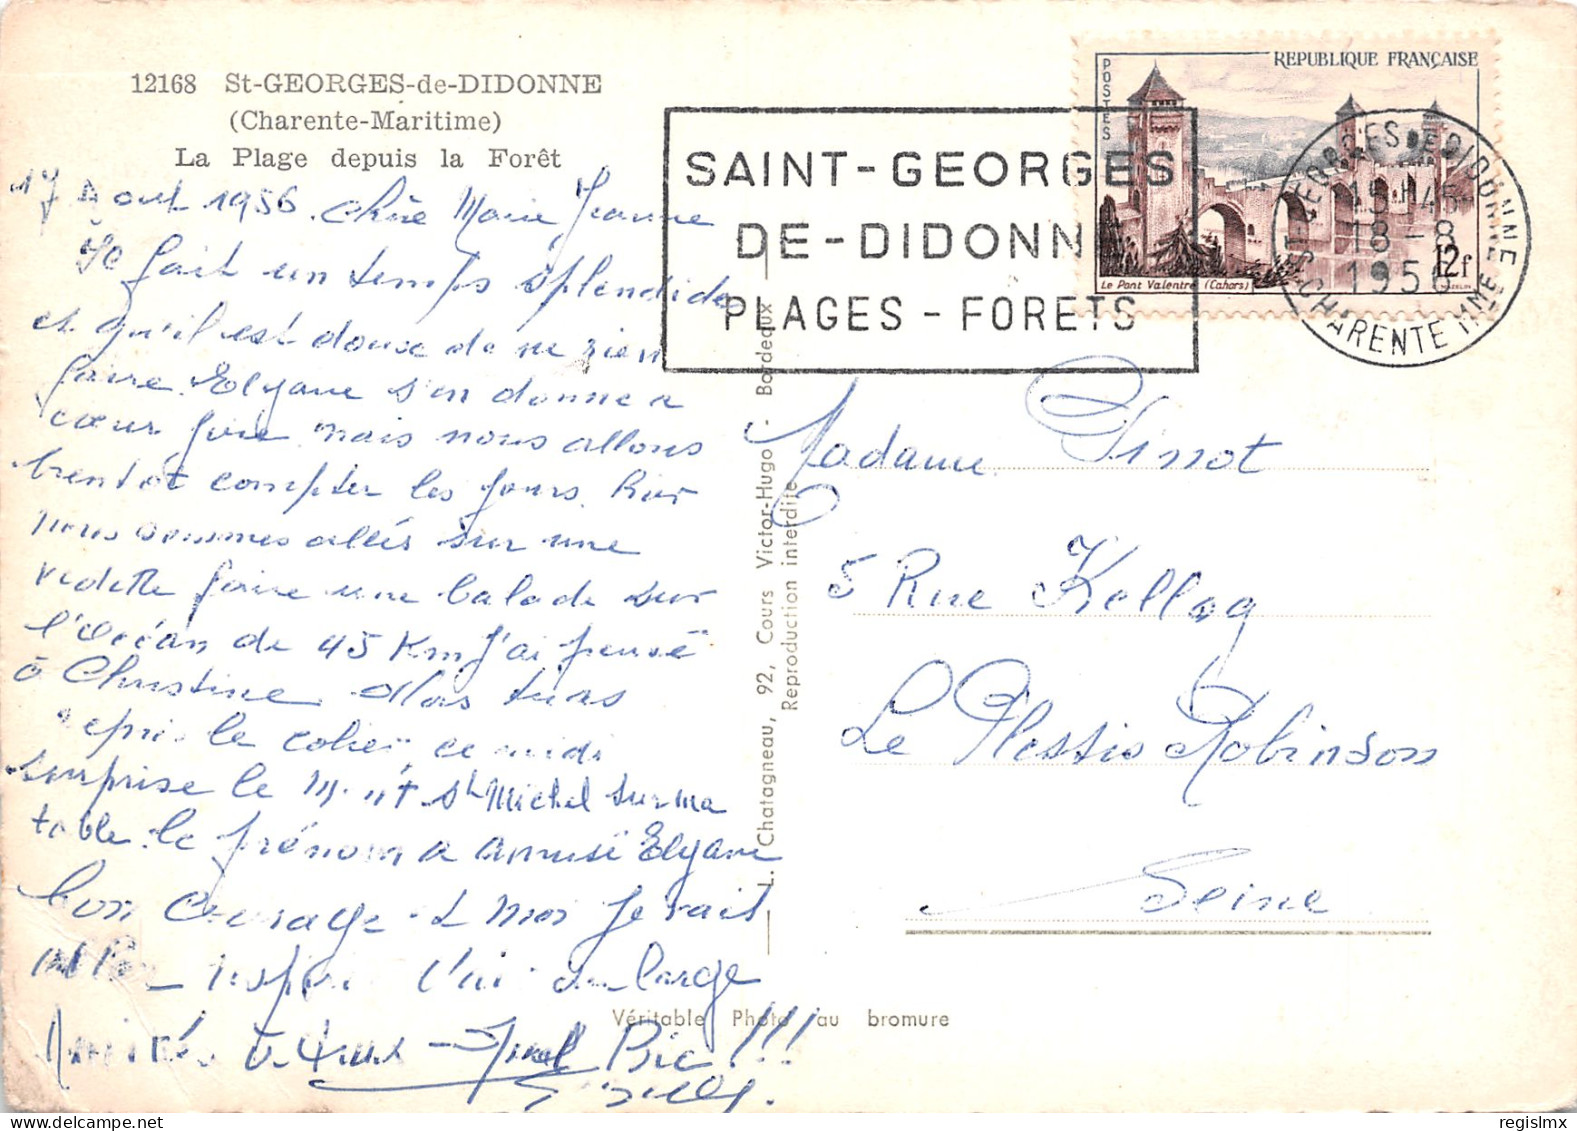 12168 St-GEORGES-de-DIDONNE
(Charente-Maritime)
La Plage depuis la Forêt
17 Aout 1956. Chère Marie Jeanne
Il fait un temps splendide
et qu'il est doux de ne rien
faire. Elyane s'en donne a
cœur joie mais nous allons
bientot compter les jours. hier
nous sommes allés sur une
vedette faire une balade sur
l'Océan de 45 Km J'ai pensé
à Christine Alors tu as
repris le collier ce midi
surprise le Mont St Michel sur ma
table. le prénom a amusé Elyane
bon courage et moi je vait
l'air du large
Amitiés à tous
Bic !!!
SAINT-GEORGES
DE-DIDONN
PLAGES - FORETS
REPUBLIQUE FRANÇAISE
POSTES
Le Pont Valentré (Cahors)
12f
ST-GEORGES DE DIDONNE
15H45
18-8
1956
CHARENTE MME
Madame Pinot
5 Rue Kellog
Le Plessis Robinson
Seine
L. Chatagneau, 92, Cours Victor-Hugo - Bordeaux
Reproduction interdite
Véritable Photo au bromure
regislmx